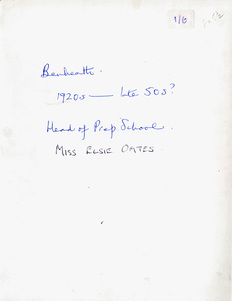 1/6
1920s — Lte 50s?
Head of Prep School.
MISS ELSIE OATES